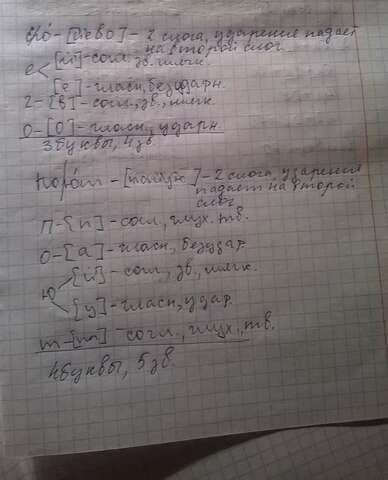 его́ - [йево] - 2 слога, ударение падает
на второй слог
е < [й] - согл., зв., мягк.
[е] - гласн., безударн.
г - [в] - согл., зв.,
о - [о] - гласн., ударн.
3 буквы, 4 зв.
пою́т - [пайут] - 2 слога, ударение
падает на второй
слог
п - [п] - согл., глух., тв.
о - [а] - гласн., безудар.
ю < [й] - согл., зв., мягк.
[у] - гласн., удар.
т - [т] - согл., глух., тв.
4 буквы, 5 зв.